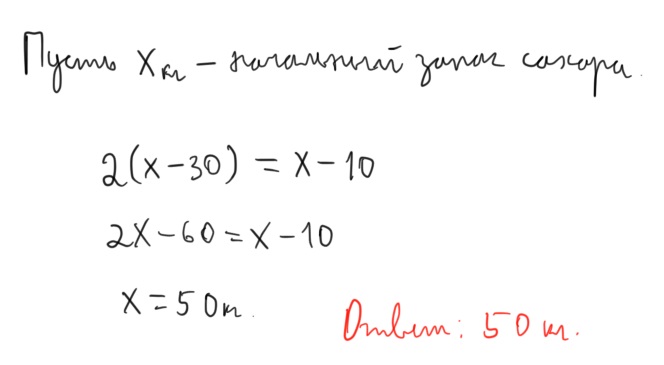 Пусть X кг – начальный запас сахара.
2(x-30) = x-10
2x-60=x-10
x=50кг.
Ответ: 50 кг.